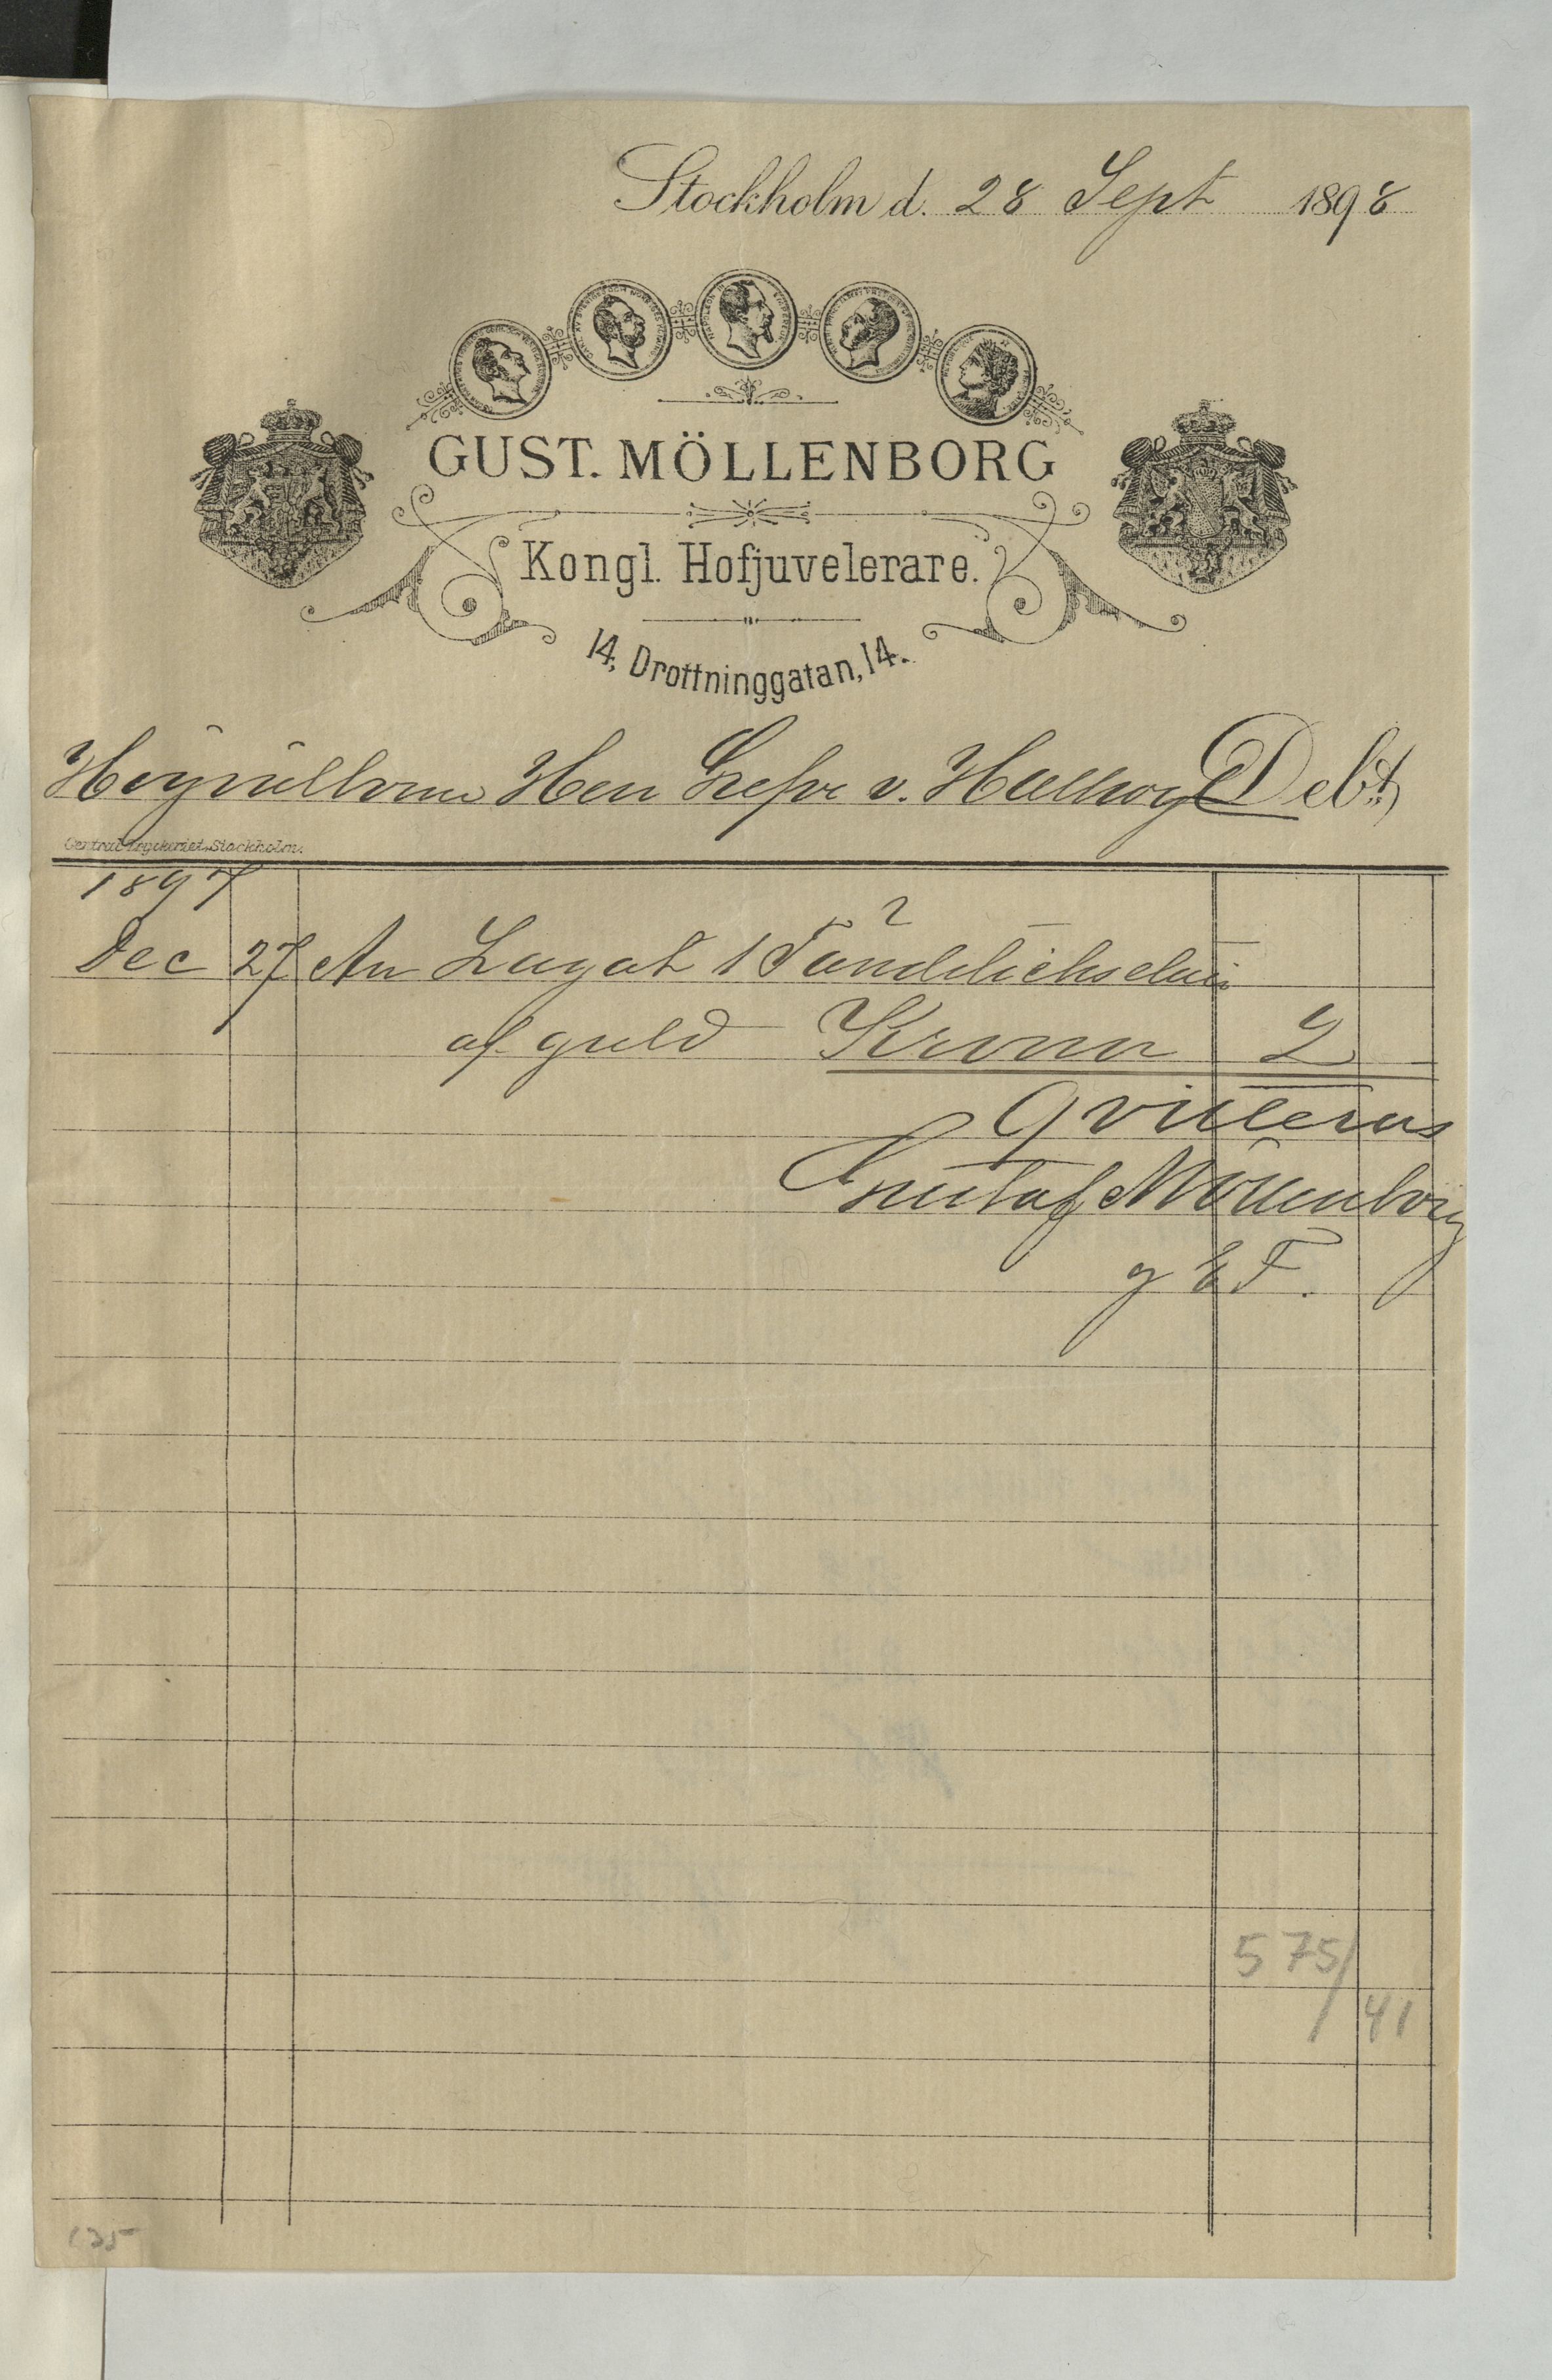 Stockholm d. 28 Sept 1898
GUST. MÖLLENBORG
Kongl. Hofjuvelerare.
14, Drottninggatan, 14.
Högvälborne Herr Grefve v. Hallwyl Debt
Central-Tryckeriet, Stockholm.
1897
Dec 27 An Lagat 1 Tändsticksetui
af guld Kronor 2
Qvitteras
Gustaf Möllenborg
g F.
575/
41
135